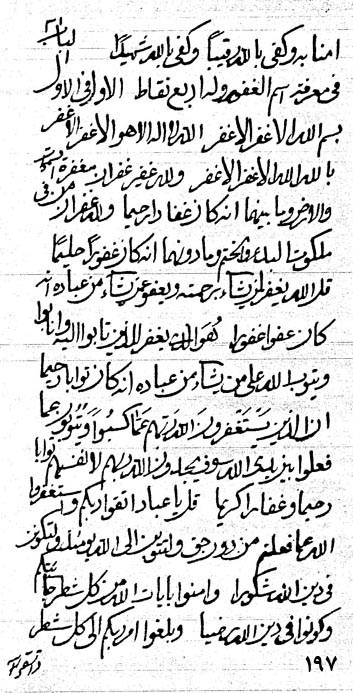 امنا به وكفى بالله رقيبا وكفى بالله شهيدا الباب
فى معرفة اسم الغفور وله اربع نقاط الاول فى الاول
بسم الله الاغفر الاغفر الله لا اله الا هو الاغفر الاغفر
بالله الله الاغفر الاغفر ولله غفير غفران مغفرة
والارض وما بينهما انه كان غفارا رحيما ولله غفران من فى
ملكوت البدء والختم وما دونهما انه كان غفورا حليما
قل الله يغفر لمن يشاء برحمته ويعفو عمن يشاء من عباده انه
كان عفوا غفورا هو الذى يغفر للذين تابوا اليه وانابوا
ويتوب الله على من يشاء من عباده انه كان توابا رحيما
ان الذين يستغفرون الله ربهم عما كسبوا ويتوبون عما
فعلوا بين يدى الله سوف يجدون الله ربهم لانفسهم توابا
رحيما وغفارا كريما قل يا عباد اتقوا ربكم واستغفروا
الله عما فعلتم من دون حق وانتم الى الله لتكونن
فى دين الله شكورا وامنوا بايات الله من كل شطر
وكونوا فى دين الله وبلغوا امر ربكم الى كل شطر
١٩٧